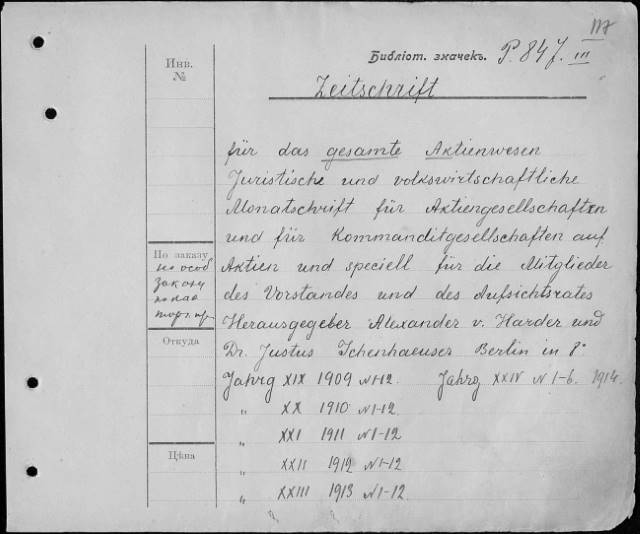 117
Библіот. значекъ. P. 847. III
Zeitschrift
Инв.
№
für das gesamte Aktienwesen
Juristische und volkswirtschaftliche
Monatschrift für Aktiengesellschaften
und für Kommanditgesellschaften auf
Aktien und speciell für die Mitglieder
des Vorstandes und des Aufsichtsrates
Herausgegeber Alexander v. Harder und
Dr. Justus Ichenhaeuser Berlin in 8°
По заказу
по особ
заказу
Откуда
Цѣна
Jahrg XIX 1909 N 1-12. Jahrg XXIV N 1-6. 1914.
„ XX 1910 N 1-12.
„ XXI 1911 N 1-12
„ XXII 1912 N 1-12
„ XXIII 1913 N 1-12.